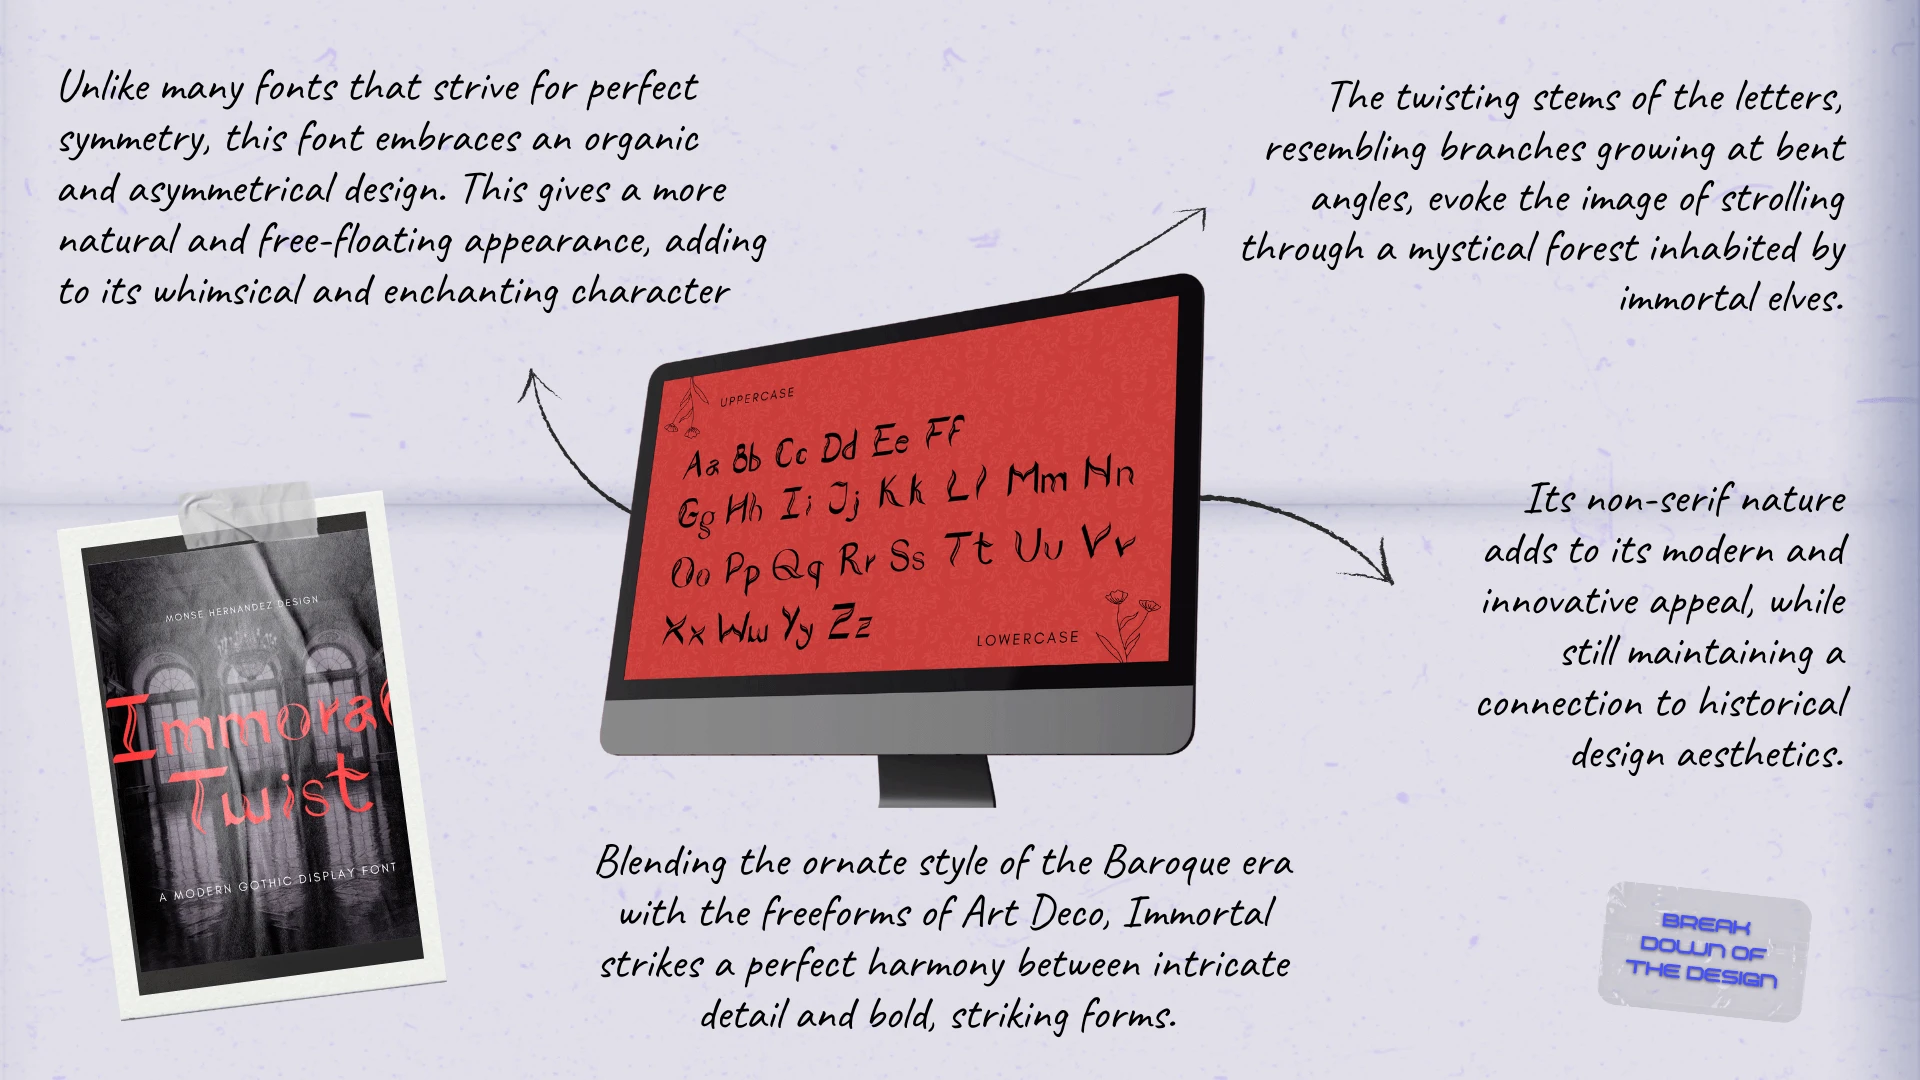 Unlike many fonts that strive for perfect
symmetry, this font embraces an organic
and asymmetrical design. This gives a more
natural and free-floating appearance, adding
to its whimsical and enchanting character
The twisting stems of the letters,
resembling branches growing at bent
angles, evoke the image of strolling
through a mystical forest inhabited by
immortal elves.
UPPERCASE
Aa Bb Cc Dd Ee Ff
Gg Hh Ii Jj Kk Ll Mm Nn
Oo Pp Qq Rr Ss Tt Uu Vv
Xx Ww Yy Zz
LOWERCASE
Its non-serif nature
adds to its modern and
innovative appeal, while
still maintaining a
connection to historical
design aesthetics.
MONSE HERNANDEZ DESIGN
Immoral
Twist
A MODERN GOTHIC DISPLAY FONT
Blending the ornate style of the Baroque era
with the freeforms of Art Deco, Immortal
strikes a perfect harmony between intricate
detail and bold, striking forms.
BREAK
DOWN OF
THE DESIGN